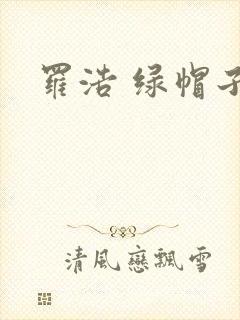 羅浩 绿帽子
清風戀飄雪